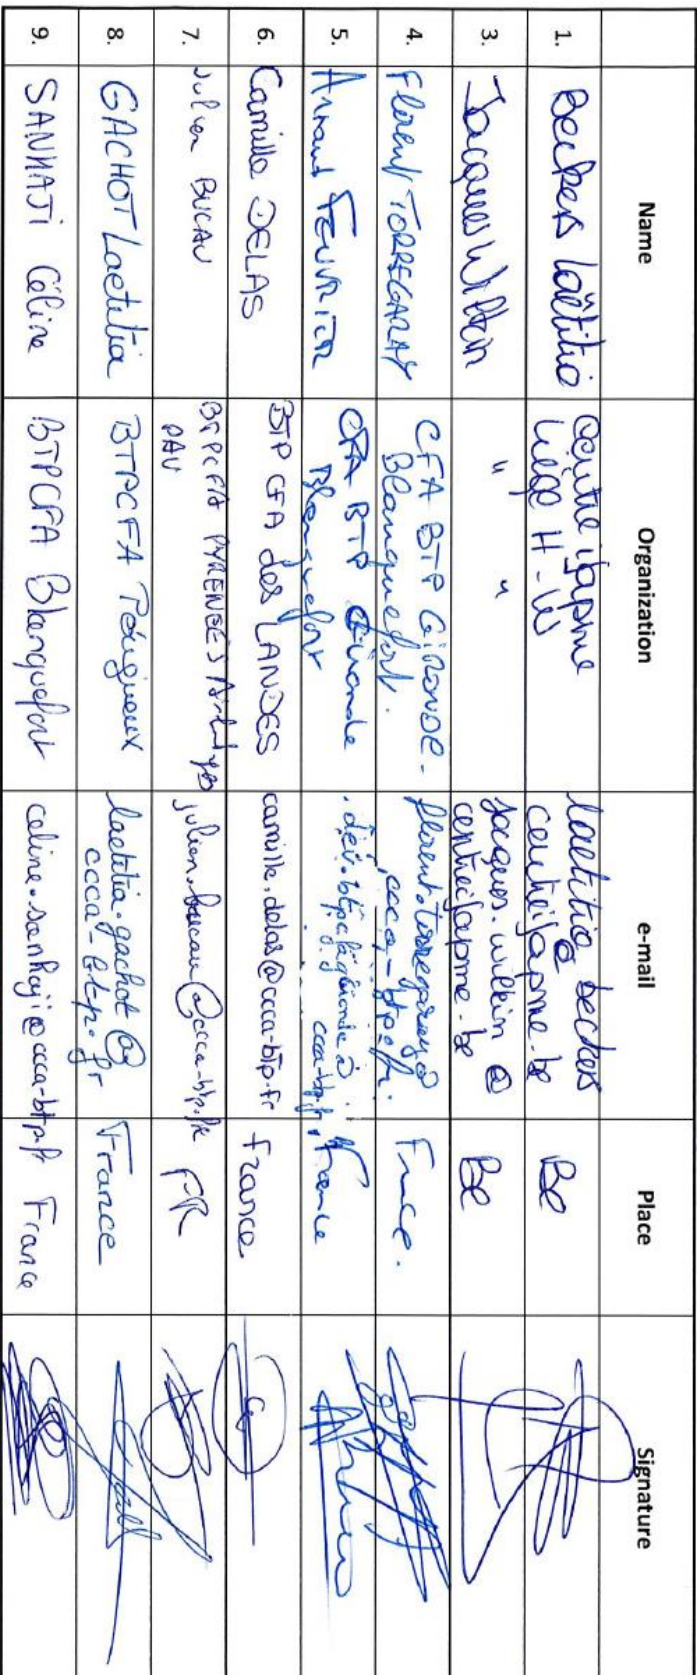 Name Organization e-mail Place Signature
1. Beckers Laëtitia Centre Ifapme Liège H-W laetitia beckers @ centreifapme.be Be
3. Jacques Wilkin " " jacques.wilkin @ centreifapme.be Be
4. Florent TORREGARAY CFA BTP GIRONDE - Blanquefort. florent.torregaray@ ccca-btp.fr. France.
5. Arnaud FEUVRIER CFA BTP Gironde Blanquefort France
6. Camille DELAS BTP CFA des LANDES camille.delas@ccca-btp.fr France
7. Julien BUCAU BTPCFA PYRENEES PAU julien.bucau@ccca-btp.fr FR
8. GACHOT Laetitia BTPCFA Périgueux laetitia.gachot@ ccca-btp.fr France
9. SANHAJI Céline BTPCFA Blanquefort celine.sanhaji@ccca-btp.fr France